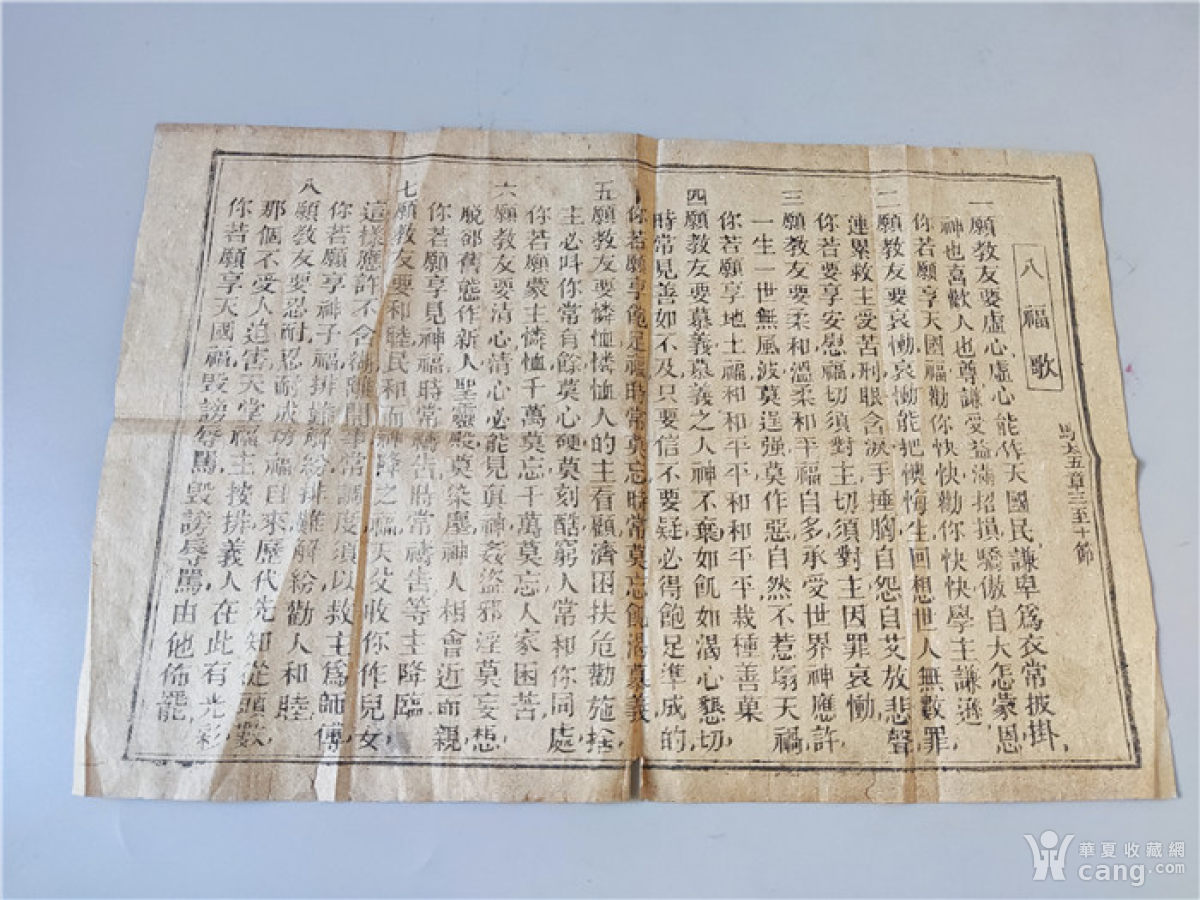 八福歌
馬太五章三至十節
一願教友要虛心、虛心能作天國民、謙卑爲衣常披掛、
神也喜歡人也尊謙受益滿招損驕傲自大怎蒙恩、
你若願享天國福勸你快快勸你快快學主謙遜、
二願教友要哀慟、哀慟能把懊悔生回想世人無數罪
連累救主受苦刑眼含淚手捶胸自怨自艾放悲聲
你若要享安慰福切須對主切須對主因罪哀慟、
三願教友要柔和溫柔和平福自多承受世界神應許
一生一世無風波莫逞强莫作惡自然不惹塌天禍
你若願享地土福和和平平和和平平栽種善菓
四願教友要慕義慕義之人神不棄如飢如渴心懇切
時常見善如不及只要信不要疑必得飽足準成的
你若願享飽足福時常莫忘時常莫忘飢渴慕義
五願教友要憐恤憐恤人的主看顧濟困扶危勸施捨
主必叫你常有餘莫心硬莫刻酷窮人常和你同處
你若願蒙主憐恤千萬莫忘千萬莫忘人家困苦
六願教友要清心清心必能見眞神姦盜邪淫莫妄想
脫卻舊態作新人聖靈殿莫染塵神人相會近而親
你若願享見神福時常禱告時常禱告等主降臨
七願教友要和睦民和而神降之福天父收你作兒女
這樣應許不含糊離間事常調度須以救主爲師傅
你若願享神子福排難解紛排難解紛勸人和睦
八願教友要忍耐、忍耐成功福自來歷代先知從頭數
那個不受人迫害天堂福主按排義人在此有光彩
你若願享天國福毀謗辱罵、毀謗辱罵由他佈擺
華夏收藏網
cang.com